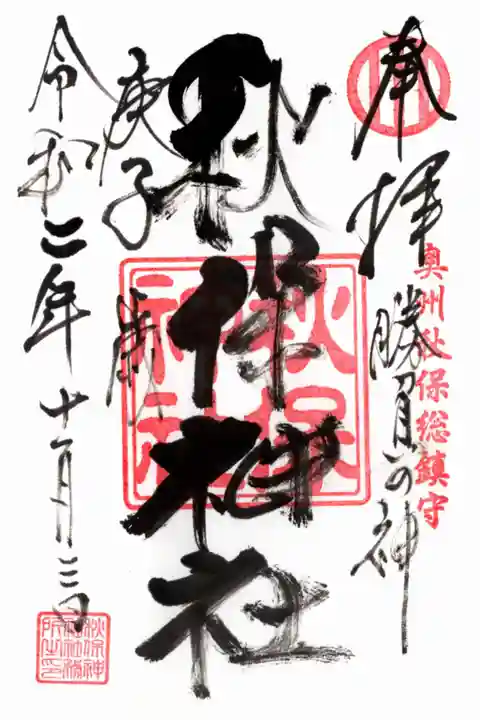 奉拝
勝負の神
奥州秋保総鎮守
秋保神社
秋保神社
庚子歳
令和二年十一月三日
秋保神社社務所之印